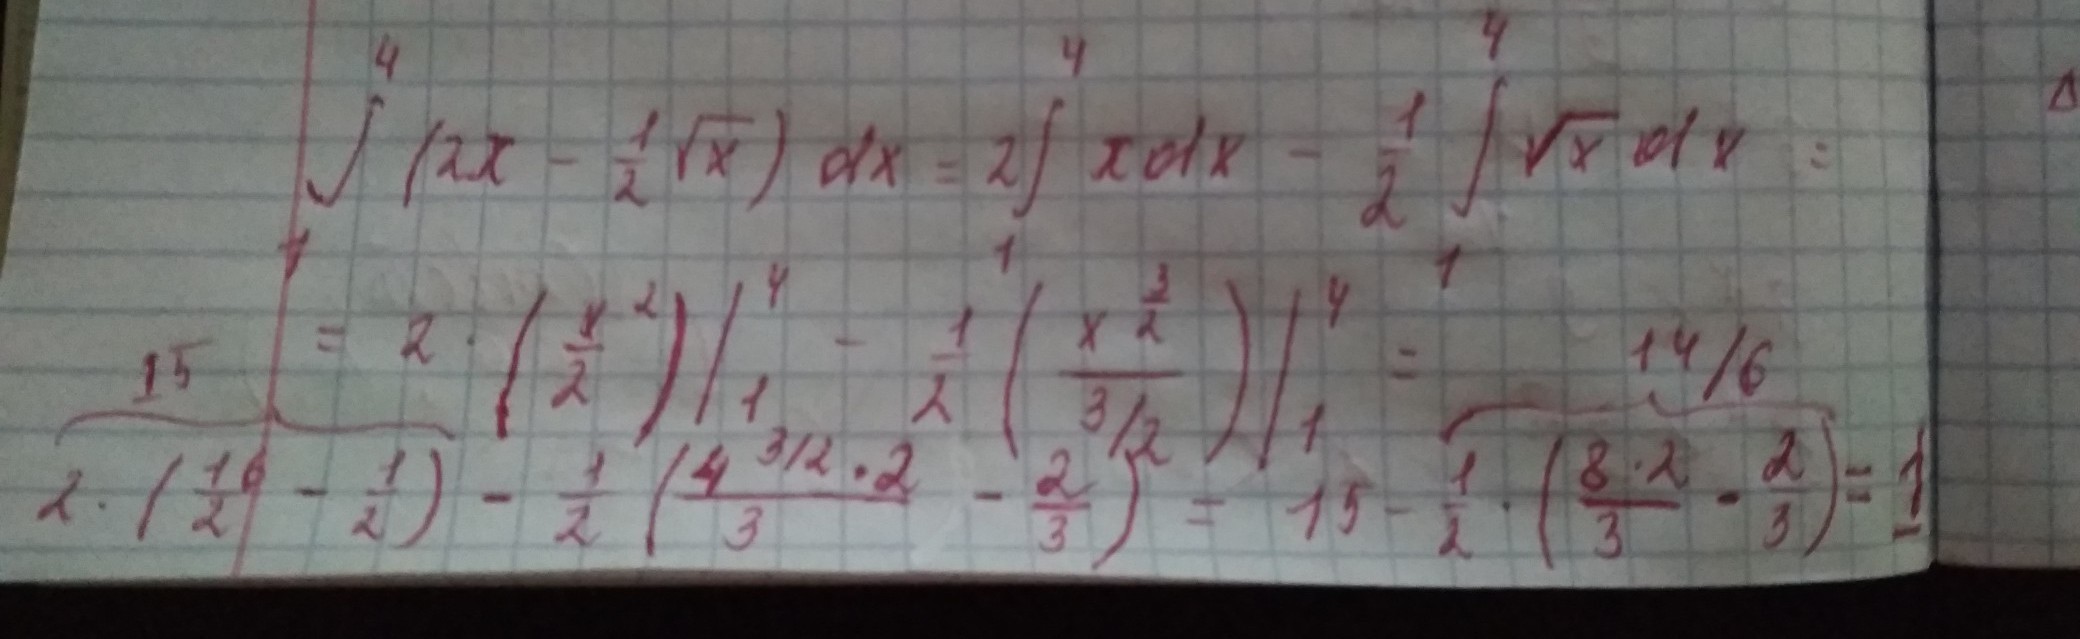 ∫₁⁴ (2x - 1/2 √x) dx = 2∫₁⁴ x dx - 1/2 ∫₁⁴ √x dx =
= 2 · (x²/2) |₁⁴ - 1/2 (x^(3/2) / 3/2) |₁⁴ =
15 14/6
2 · (16/2 - 1/2) - 1/2 (4^(3/2) · 2 / 3 - 2/3) = 15 - 1/2 · (8 · 2 / 3 - 2/3) = 1